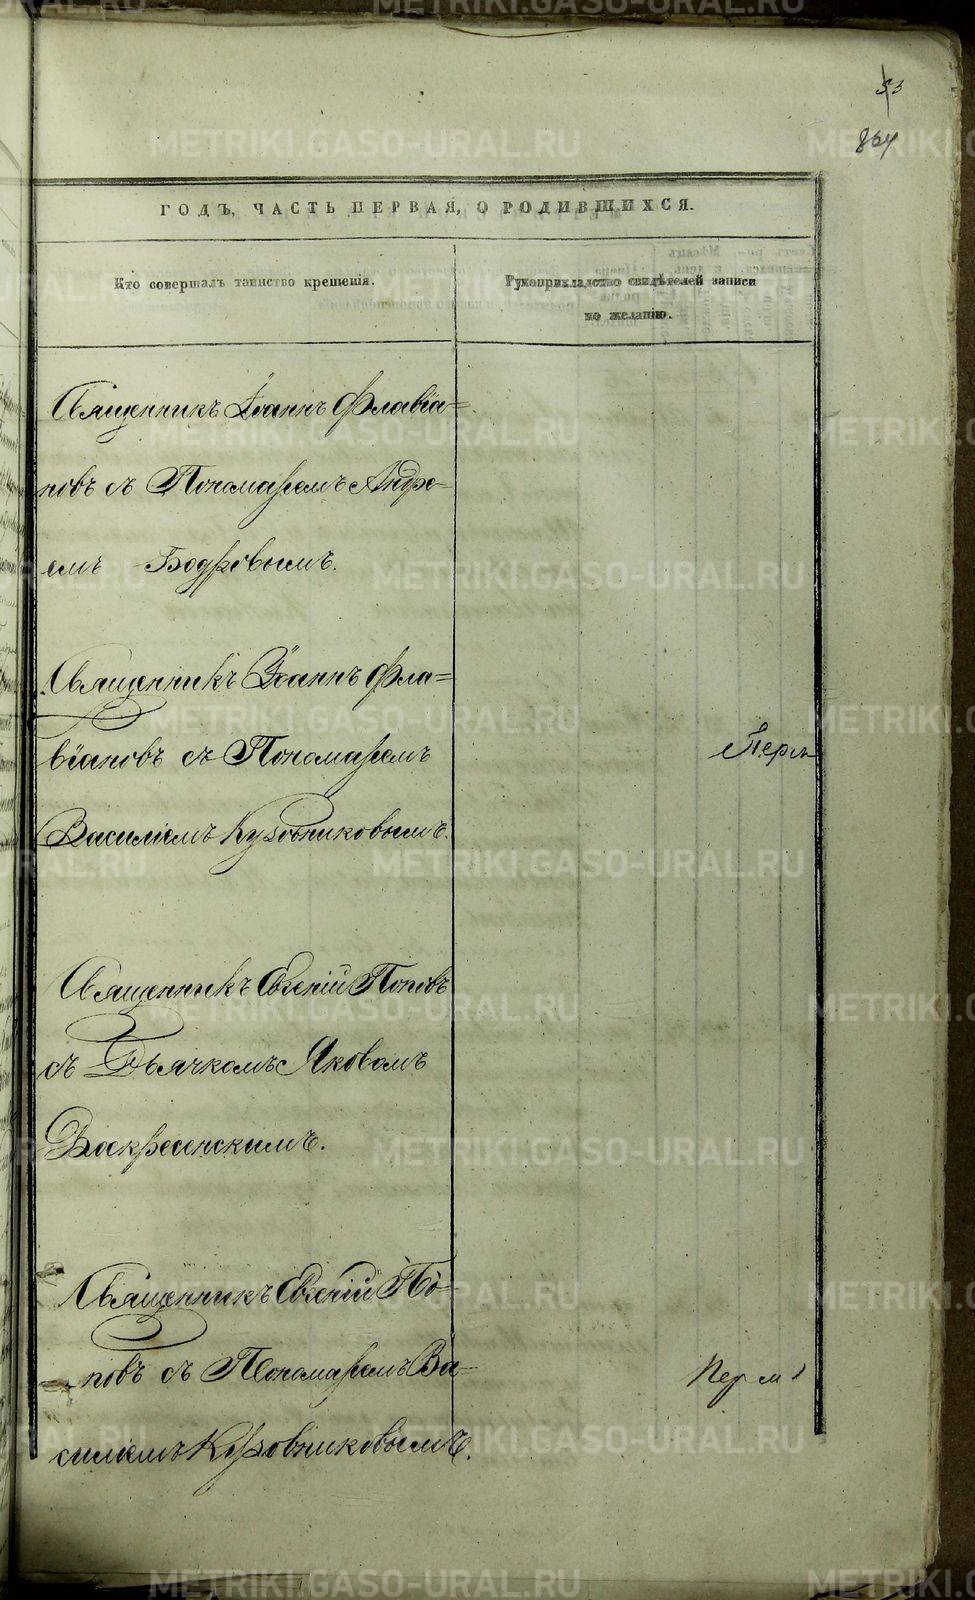 53
864
ГОДЪ, ЧАСТЬ ПЕРВАЯ, О РОДИВШИХСЯ.
Кто совершалъ таинство крещенія.
Рукоприкладство свидѣтелей записи
по желанію.
Священникъ Іоаннъ Флавіа=
новъ съ Пономаремъ Андре-
емъ Бодровымъ.
Священникъ Іоаннъ Фла=
віановъ съ Пономаремъ
Василіемъ Кузовниковымъ.
Священникъ Евгеній Поповъ
съ Дьячкомъ Яковомъ
Воскресенскимъ.
Священникъ Евгеній По-
повъ съ Пономаремъ Ва=
силіемъ Кузовниковымъ.
METRIKI.GASO-URAL.RU